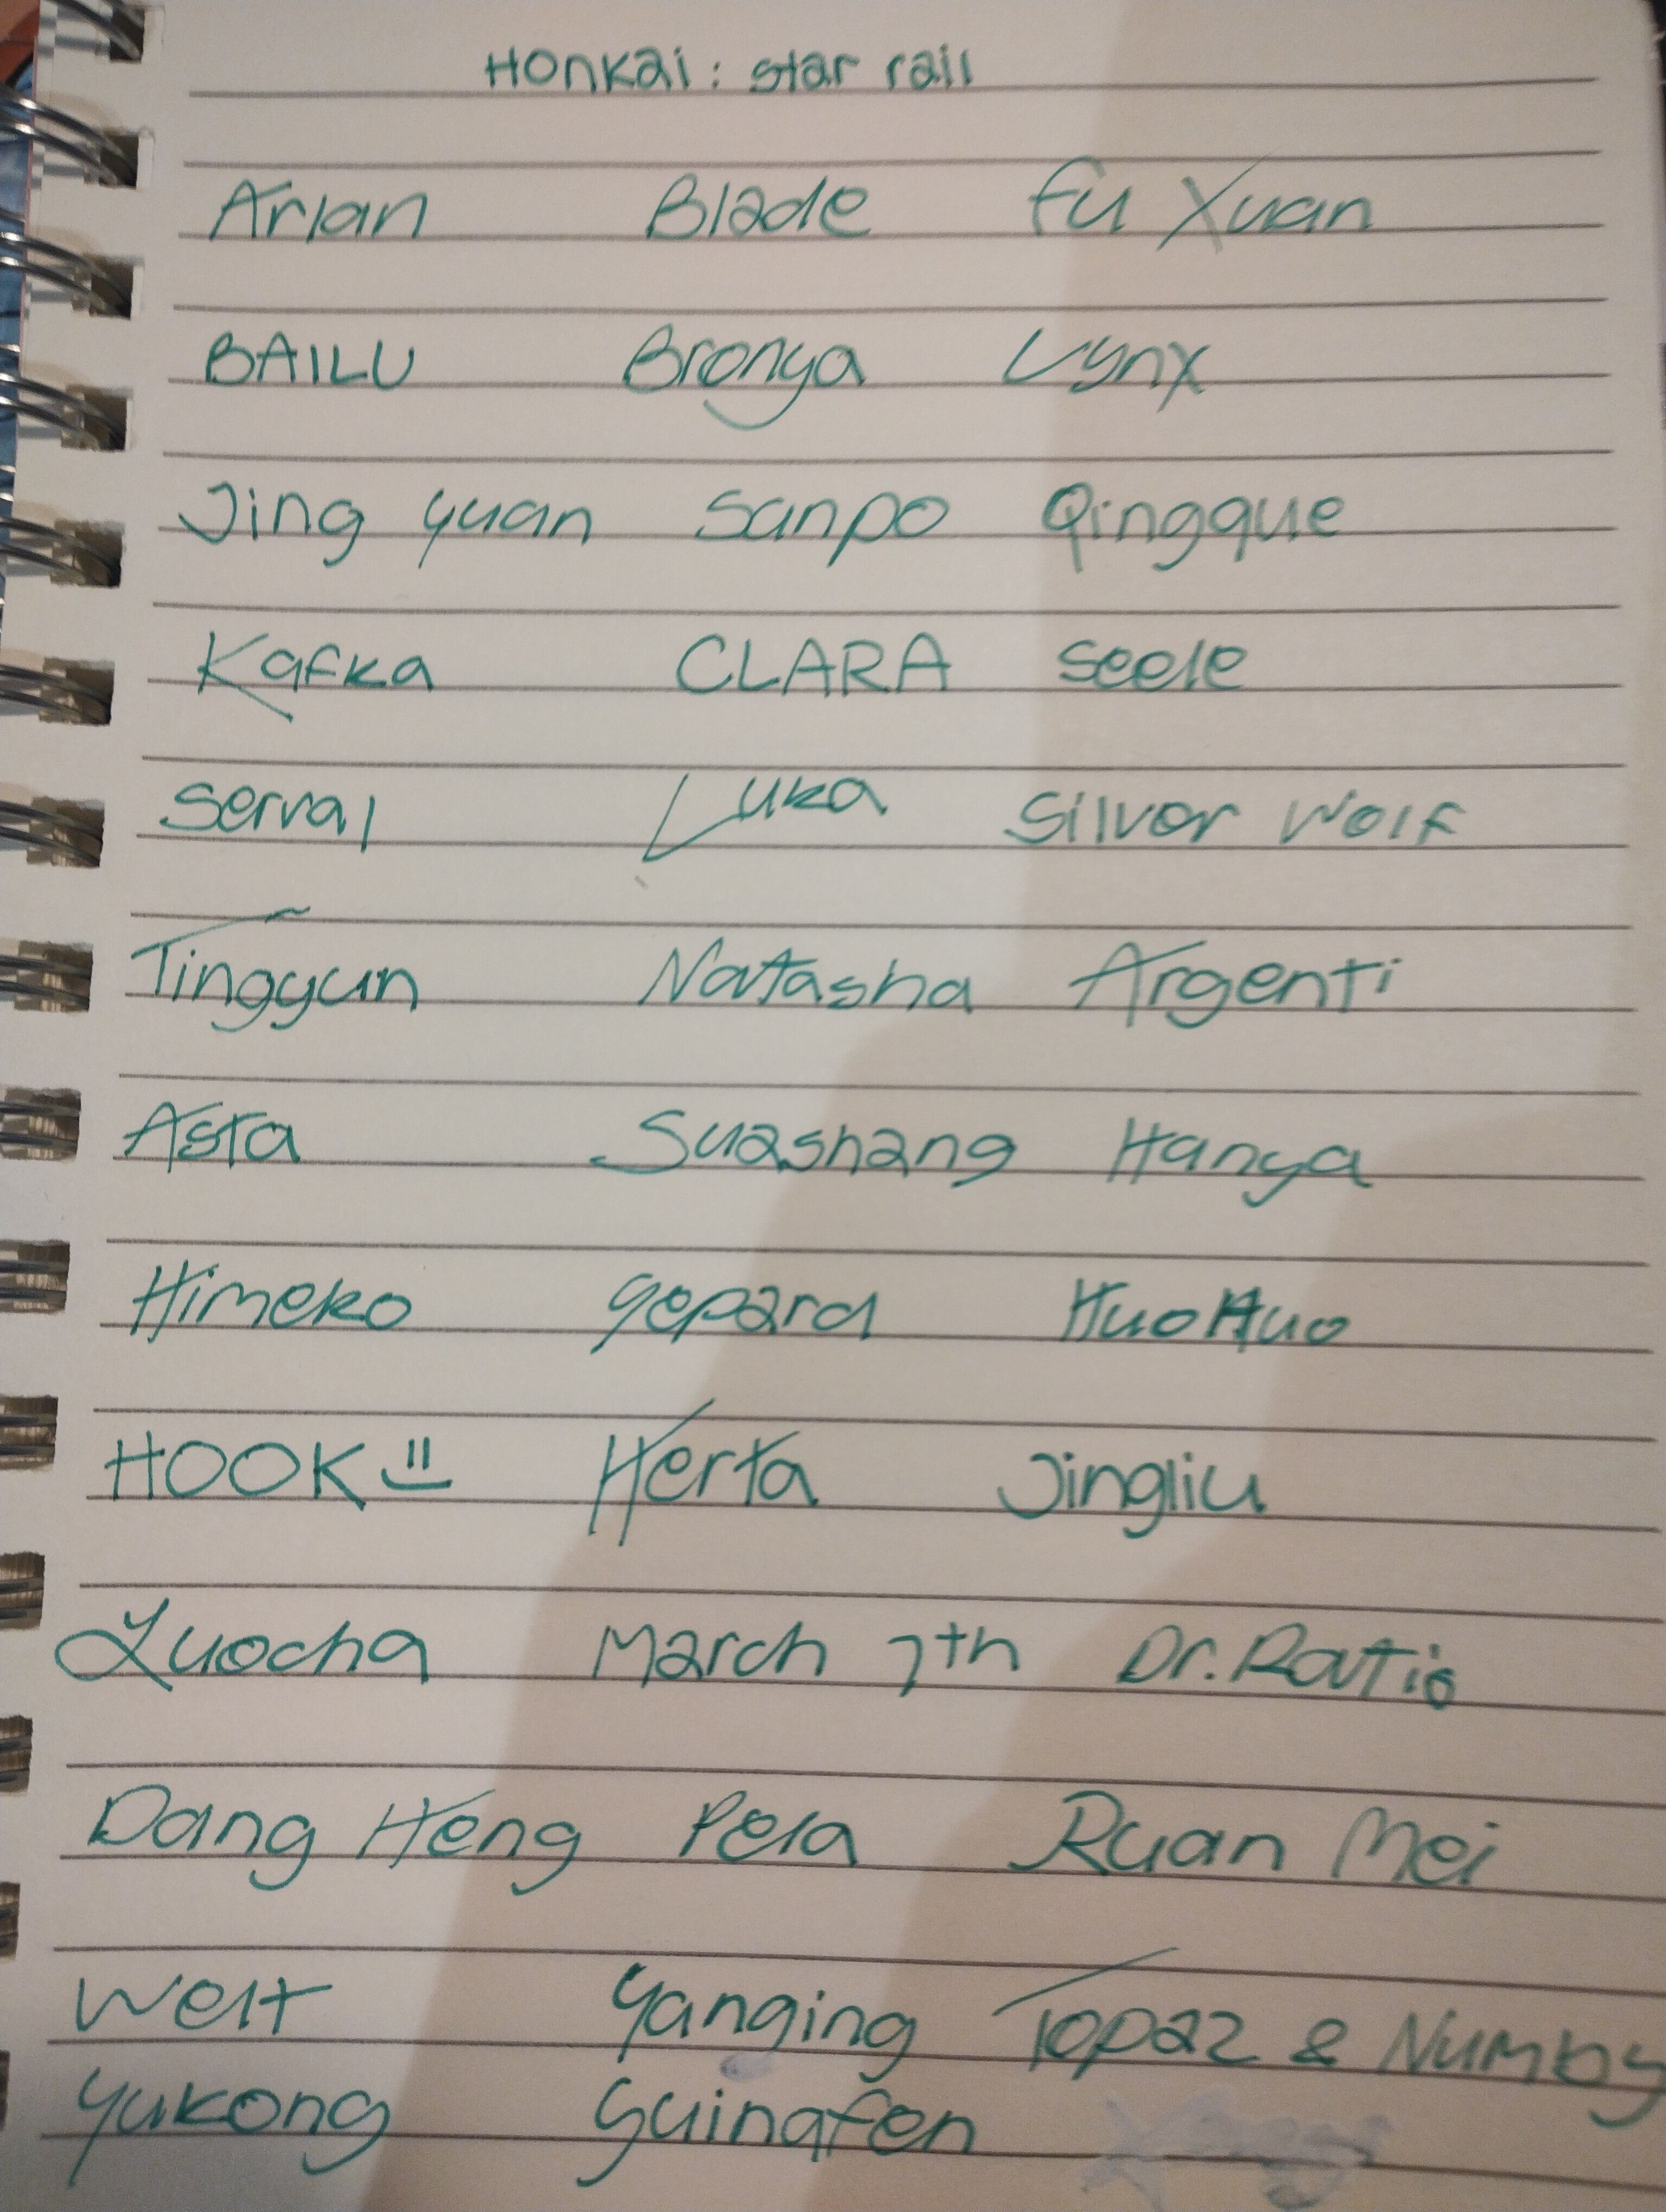 Honkai: star rail
Arlan Blade Fu Xuan
BAILU Bronya Lynx
Jing yuan Sanpo Qingque
Kafka CLARA Seele
Serval Luka Silver Wolf
Tingyun Natasha Argenti
Asta Suashang Hanya
Himeko gepard HuoHuo
HOOK Herta Jingliu
Luocha March 7th Dr. Ratio
Dang Heng Pela Ruan Mei
Welt Yanqing Topaz & Numby
Yukong Guinafen